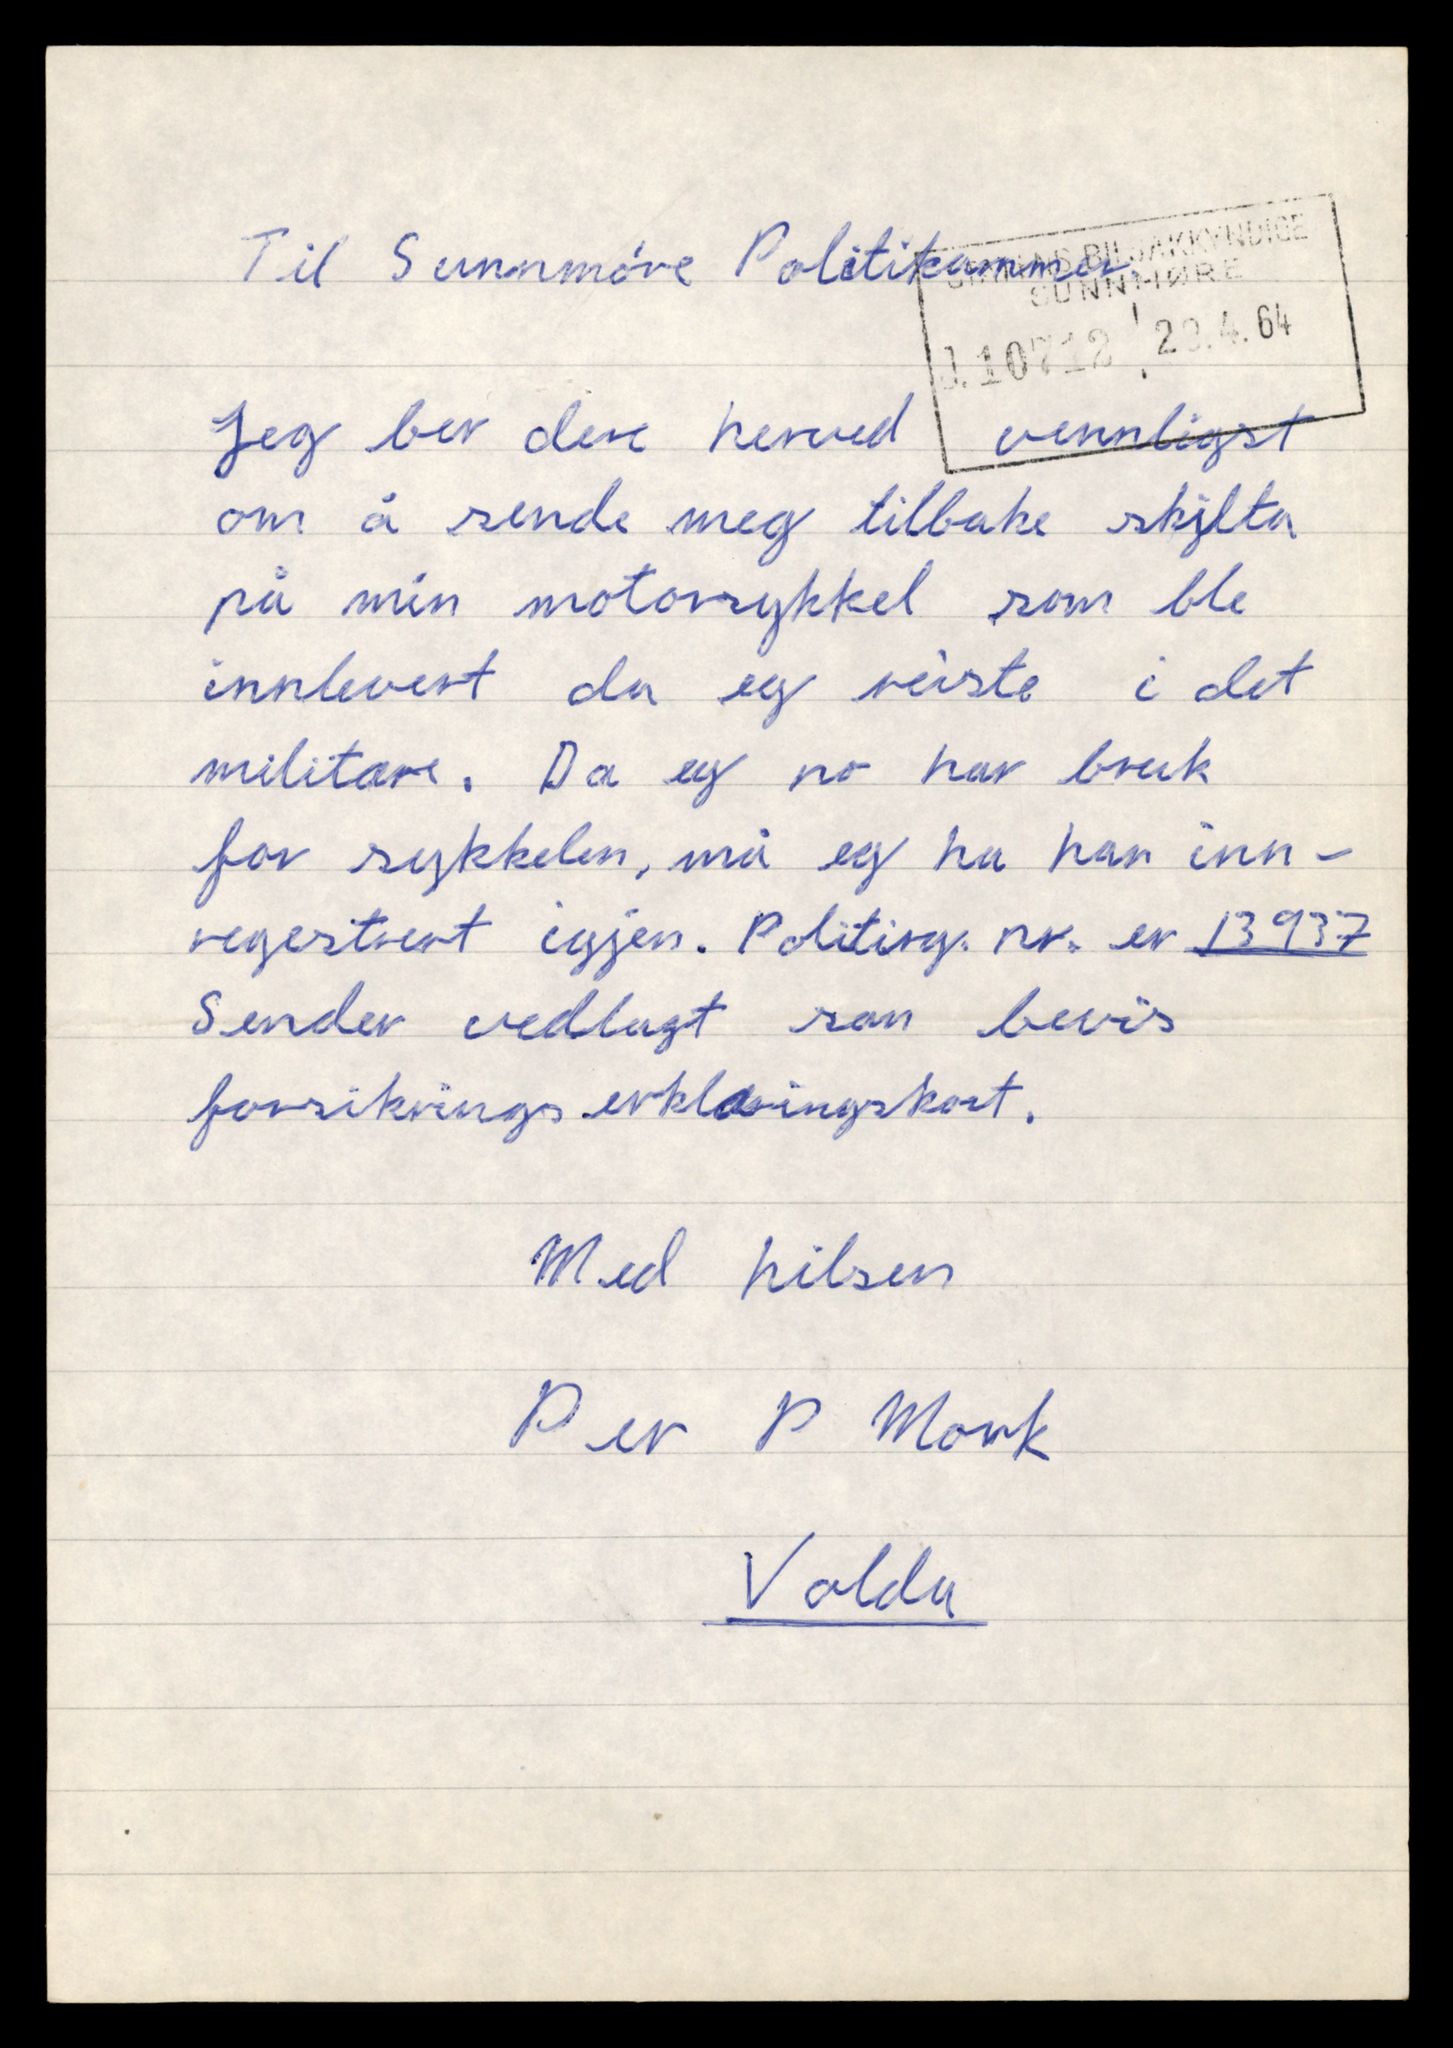 Til Sunnmóre Politikammer
STATENS BILSAKKYNDIGE
SUNNMØRE
J. 10712 29.4.64
Jeg ber dere herved vennligst
om å sende meg tilbake skilta
på min motorsykkel som ble
innlevert da eg reiste i det
militære. Da eg no har bruk
for sykkelen, må eg ha han inn-
regestrert igjen. Politireg. nr. er 13937
Sender vedlagt som bevis
forsikrings erklæringskort.
Med hilsen
Per P Mork
Volda